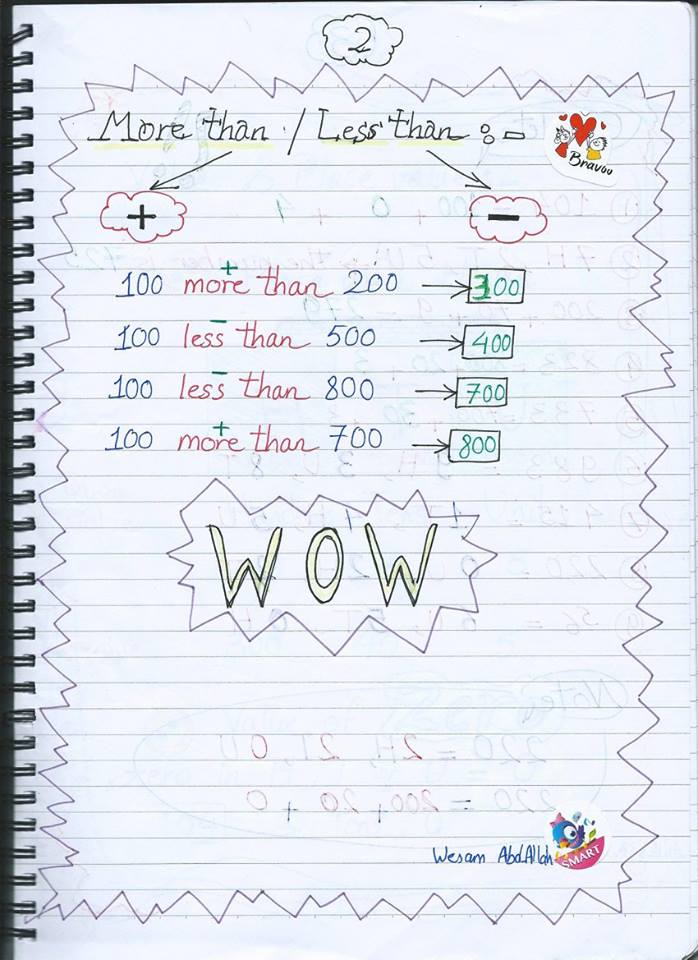 2
More than / Less than :-
Bravoo
+ -
+
100 more than 200 → 300
-
100 less than 500 → 400
-
100 less than 800 → 700
+
100 more than 700 → 800
WOW
Wesam AbdAllah
SMART